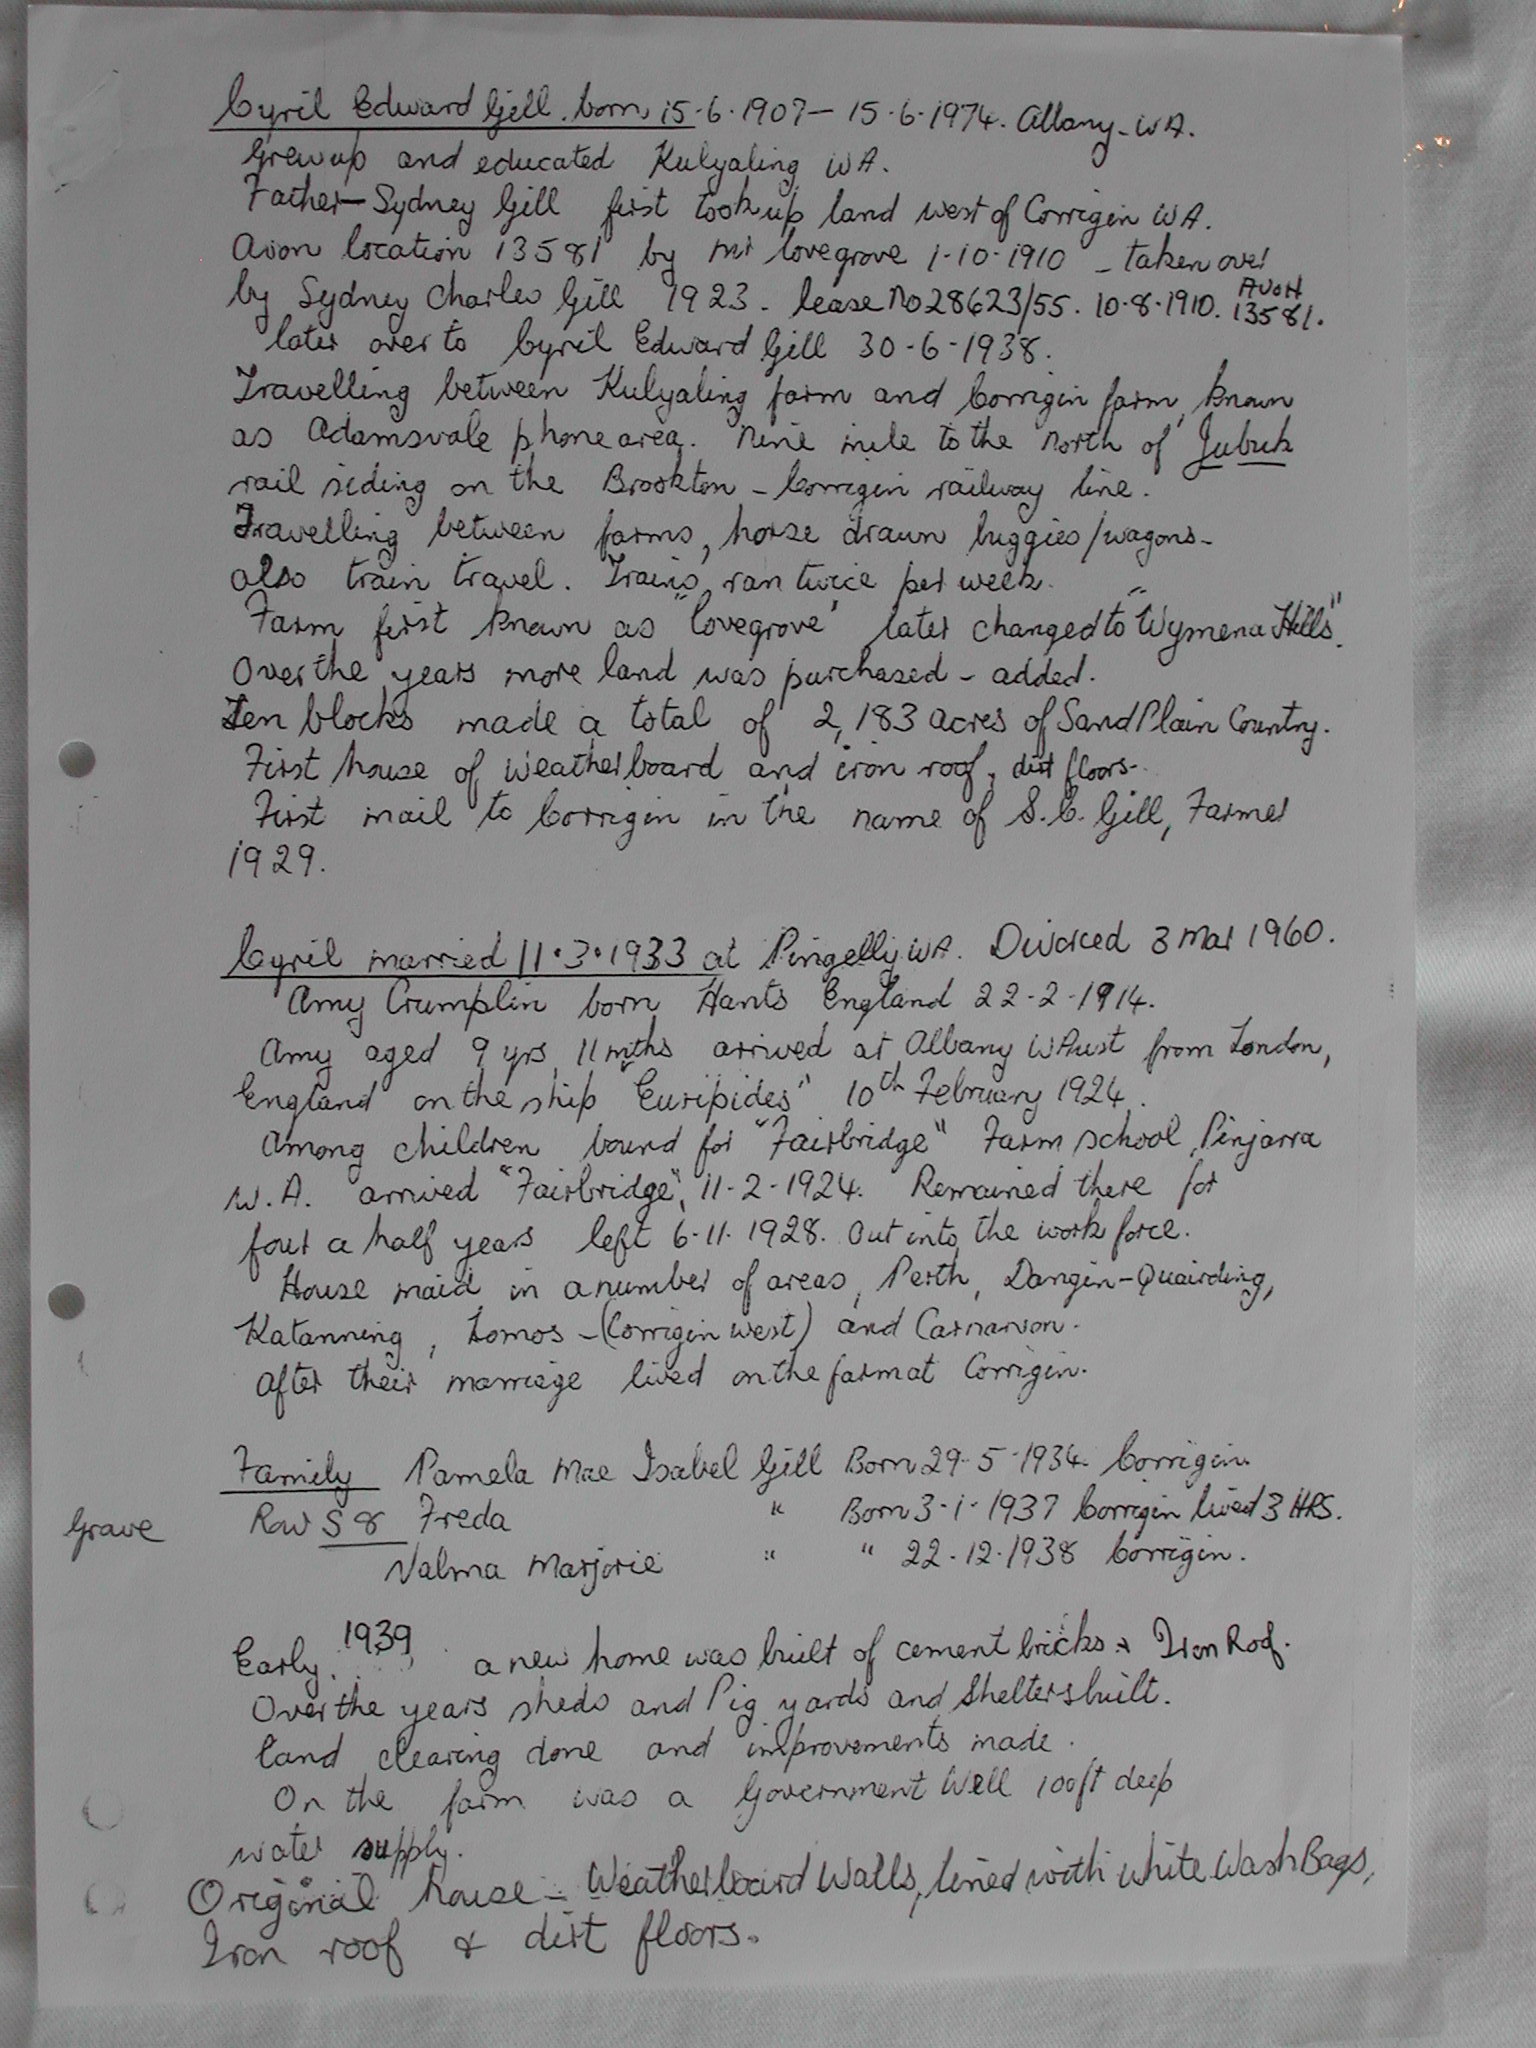 Cyril Edward Gill. born 15-6-1907 - 15-6-1974. Albany - WA.
Grew up and educated Kulyaling WA.
Father - Sydney Gill first took up land west of Corrigin WA.
Avon location 13581 by Mr Lovegrove 1-10-1910 - taken over
by Sydney Charles Gill 1923. Lease No 28623/55. 10-8-1910. Avon 13581.
later over to Cyril Edward Gill 30-6-1938.
Travelling between Kulyaling farm and Corrigin farm, known
as Adamsvale phone area. Nine mile to the north of Jubuk
rail siding on the Brookton - Corrigin railway line.
Travelling between farms, horse drawn buggies/wagons -
also train travel. Trains ran twice per week.
Farm first known as "Lovegrove" later changed to "Wymena Hills".
Over the years more land was purchased - added.
Ten blocks made a total of 2,183 acres of Sand Plain Country.
First house of weatherboard and iron roof, dirt floors -.
First mail to Corrigin in the name of S.C. Gill, Farmer
1929.
Cyril married 11.3.1933 at Pingelly WA. Divorced 3 Mar 1960.
Amy Crumplin born Hants England 22-2-1914.
Amy aged 9 yrs 11 mths arrived at Albany WAust from London,
England on the ship "Euripides" 10th February 1924.
Among children bound for "Fairbridge" Farm School, Pinjarra
W.A. arrived "Fairbridge", 11-2-1924. Remained there for
four a half years left 6-11-1928. Out into the work force.
House maid in a number of areas, Perth, Dangin-Quairding,
Katanning, Lomos - (Corrigin west) and Carnarvon.
After their marriage lived on the farm at Corrigin.
Family Pamela Mae Isabel Gill Born 29-5-1934. Corrigin.
Grave Row S 8 Freda " Born 3-1-1937 Corrigin lived 3 HRS.
Valma Marjorie " " 22-12-1938 Corrigin.
Early. 1939 a new home was built of cement bricks & Iron Roof.
Over the years sheds and Pig yards and Shelters built.
Land clearing done and improvements made.
On the farm was a Government Well 100ft deep
water supply.
Original house - Weatherboard Walls, lined with white Wash Bags,
Iron roof & dirt floors.